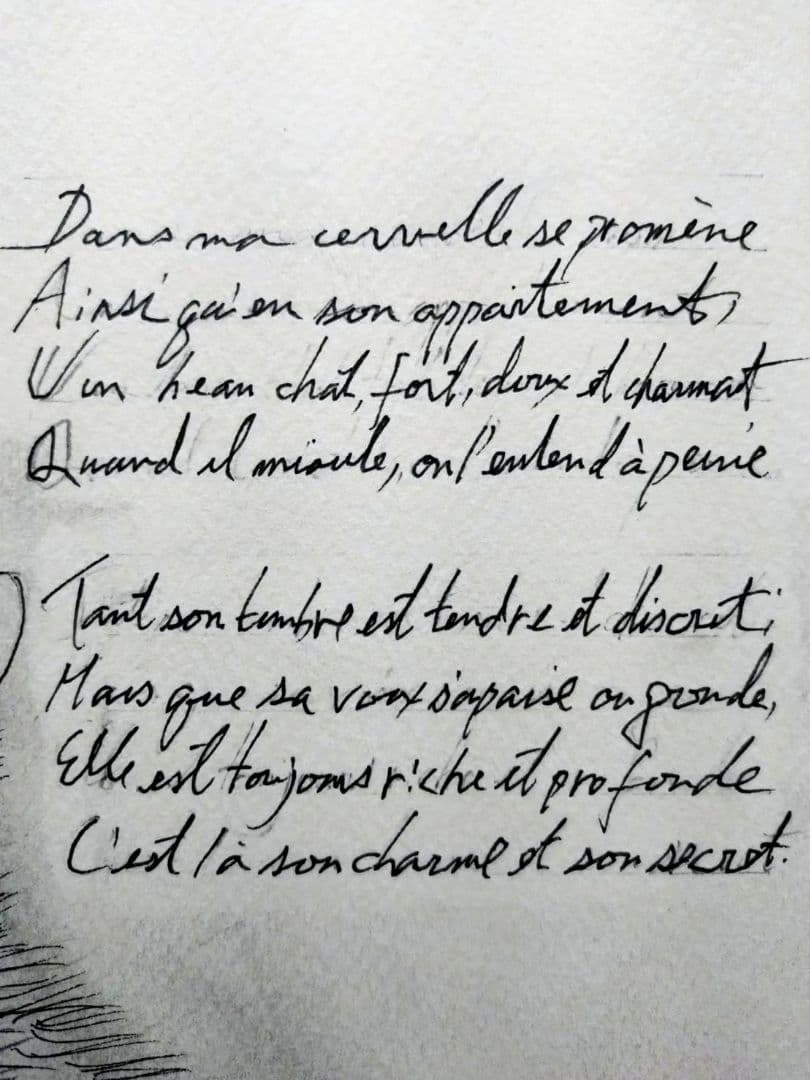 Dans ma cervelle se promène
Ainsi qu'en son appartement,
Un beau chat, fort, doux et charmant
Quand il miaule, on l'entend à peine
Tant son timbre est tendre et discret;
Mais que sa voix s'apaise ou gronde,
Elle est toujours riche et profonde
C'est là son charme et son secret.